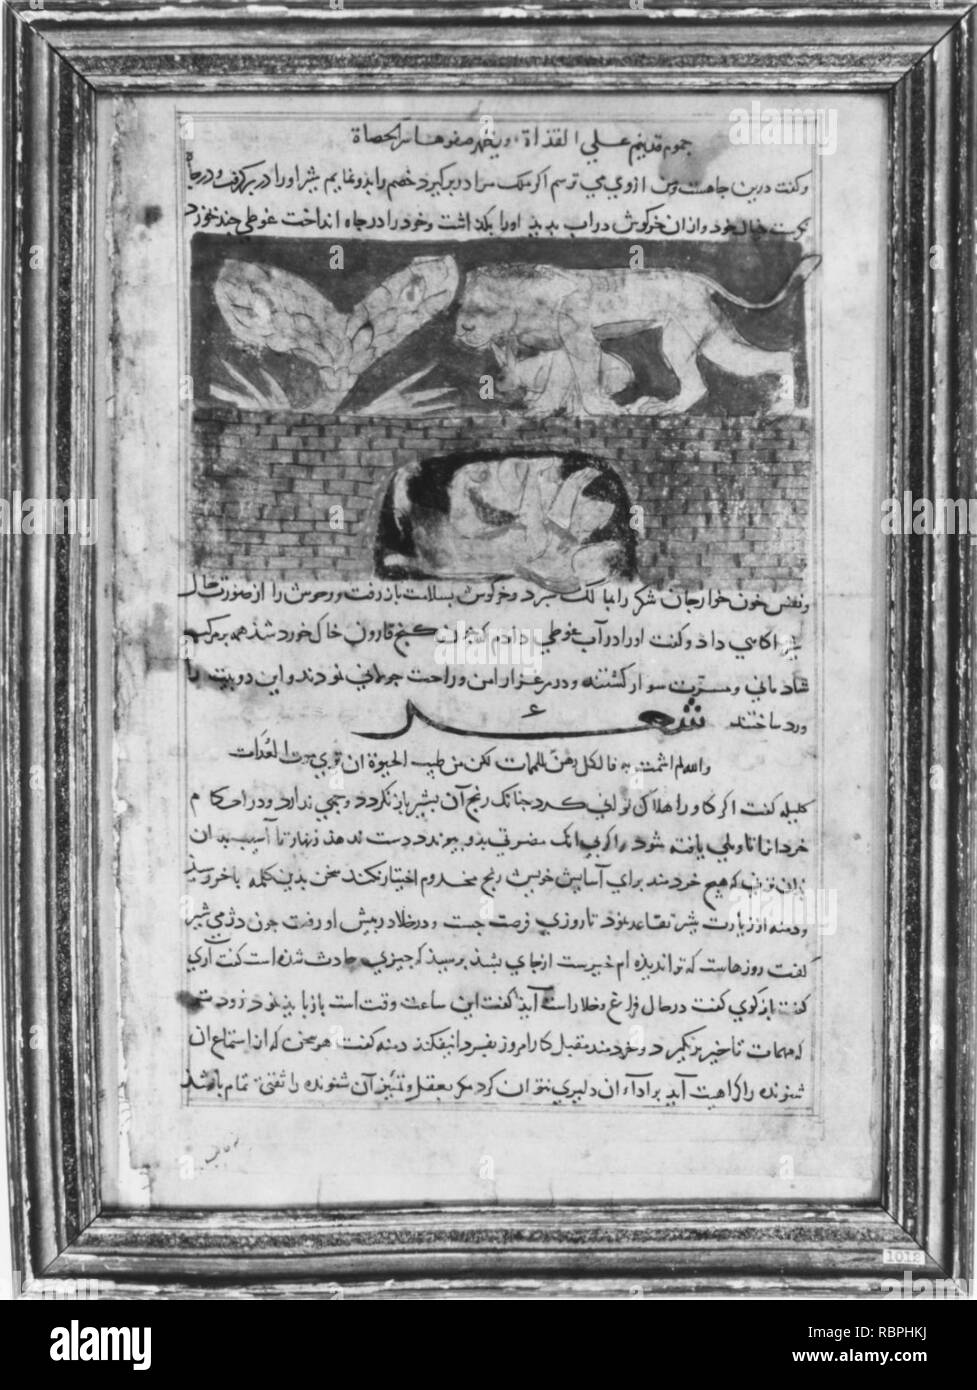 جموم قد ینم علی القذاة و یظهر صفوها سر الحصاة
و گفت درین جاهست و من از وی می ترسم اگر ملک مرا در بر گیرد خصم را بدو نمایم شیر او را در بر گرفت و در چاه
خیال خود و از آن خرگوش در آب بدید او را بگذاشت و خود را در چاه انداخت غوطی چند خورد
و نفس خون خوار جان شکر را بمالک سپرد و خرگوش بسلامت باز رفت و وحوش را از صورت حال
شیر آگاهی داد و گفت او را در آب غوطی دادم که چون گنج قارون خاک خورد شد همه بر مرکب
شادمانی و مسرت سوار گشتند و در مرغزار امن و راحت جولانی نمودند و این دو بیت را
ورد ساختند شعر
والله لم اشمت به فالکل رهن للممات لکن من طیب الحیوة ان تری موت العداة
کلیله گفت اگر گاو را هلاک توانی کرد چنانک رنج آن بشیر باز نگردد وجهی دارد و در احکام
خرد آنرا تاویلی یافته شود و اگر بی انک مضرتی بدو پیوندد دست ندهد زنهار تا آسیب بدان
نزنی که هیچ خردمند برای آسایش خویش رنج مخدوم اختیار نکند سخن بدین کلمه باخر رسید
و دمنه از زیارت شیر تقاعد نمود تا روزی فرصت جست و در خلا پیش او رفت چون دژمی شیر
گفت روزهاست که ترا ندیده ام خیر هست از جای بشد پرسید که چیزی حادث شده است گفت آری
گفت باز گوی گفت در حال فراغ و خلا راست آید گفت این ساعت وقت است باز باید نمود زود
که مهمات تاخیر بر نگیرد و خردمند مقبل کار امروز بفردا نیفکند دمنه گفت هر سخن که از استماع آن
شنونده را کراهیت آید بر ادای آن دلیری نتوان کرد مگر بعقل و تمییز آن شنونده را ثقتی تمام باشد
1018
alamy
Image ID: RBPHKJ
www.alamy.com